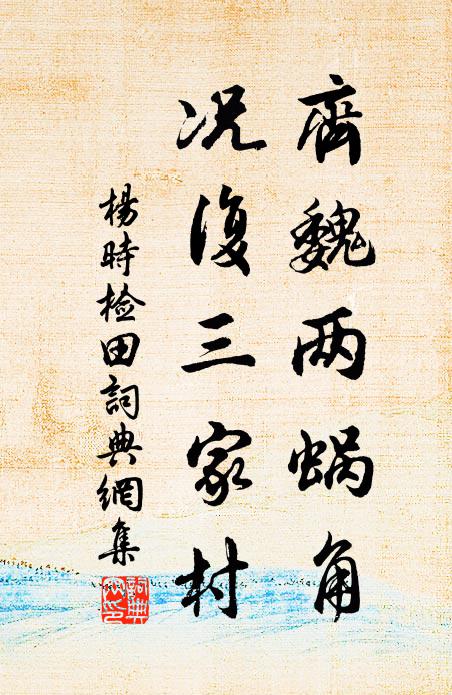 齊魏两蜗角
况復三家村
楊時檢田詞典網集